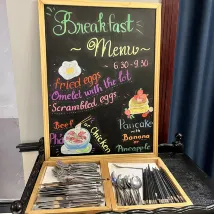 Breakfast
~ Menu ~
6:30 - 9:30
Fried eggs
Omelet with the lot
Scrambled eggs
Beef
Chicken
Pho
Pancake
with
Banana
or
Pineapple